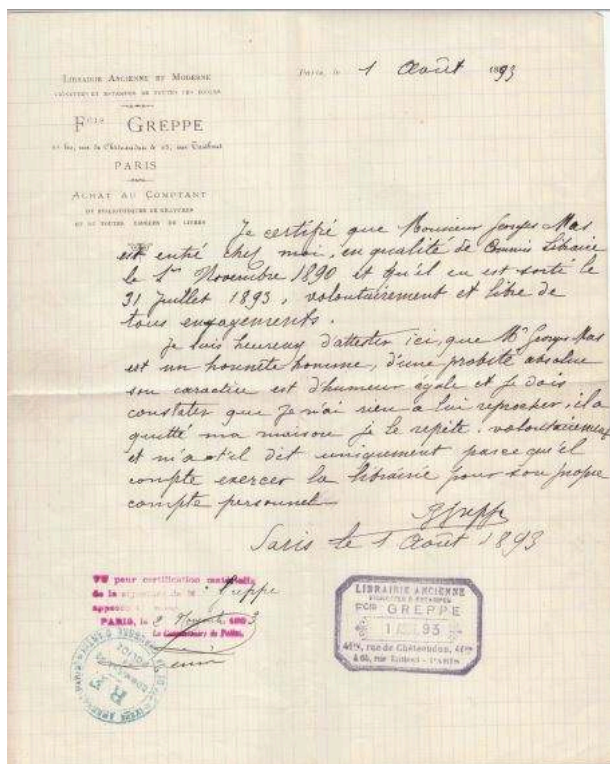 LIBRAIRIE ANCIENNE ET MODERNE
VIGNETTES ET ESTAMPES DE TOUTES LES ÉCOLES
Fcis GREPPE
rue de Châteaudun & 63, rue Taitbout
PARIS
ACHAT AU COMPTANT
DE BIBLIOTHÈQUES DE GRAVURES
ET DE TOUTES SORTES DE LIVRES
Paris, le 1 Août 1893
Je certifie que Monsieur Georges Mas
est entré chez moi, en qualité de Commis Libraire
le 1er Novembre 1890 et qu'il en est sorti le
31 Juillet 1893, volontairement et libre de
tous engagements.
Je suis heureux d'attester ici, que Mr Georges Mas
est un honnête homme, d'une probité absolue
son caractère est d'humeur égale et je dois
constater que je n'ai rien a lui reprocher, il a
quitté ma maison je le repète, volontairement
et m'a t'il dit uniquement parce qu'il
compte exercer la librairie pour son propre
compte personnel
Greppe
Paris le 1 Août 1893
VU pour certification matérielle
de la signature de M. Greppe
apposée
PARIS, le 2 Novembre 1893
Le Commissaire de Police,
R F
POLICE
LIBRAIRIE ANCIENNE
VIGNETTES & ESTAMPES
Fcis GREPPE
1 93
rue de Châteaudun,
& 63, rue Taitbout - PARIS